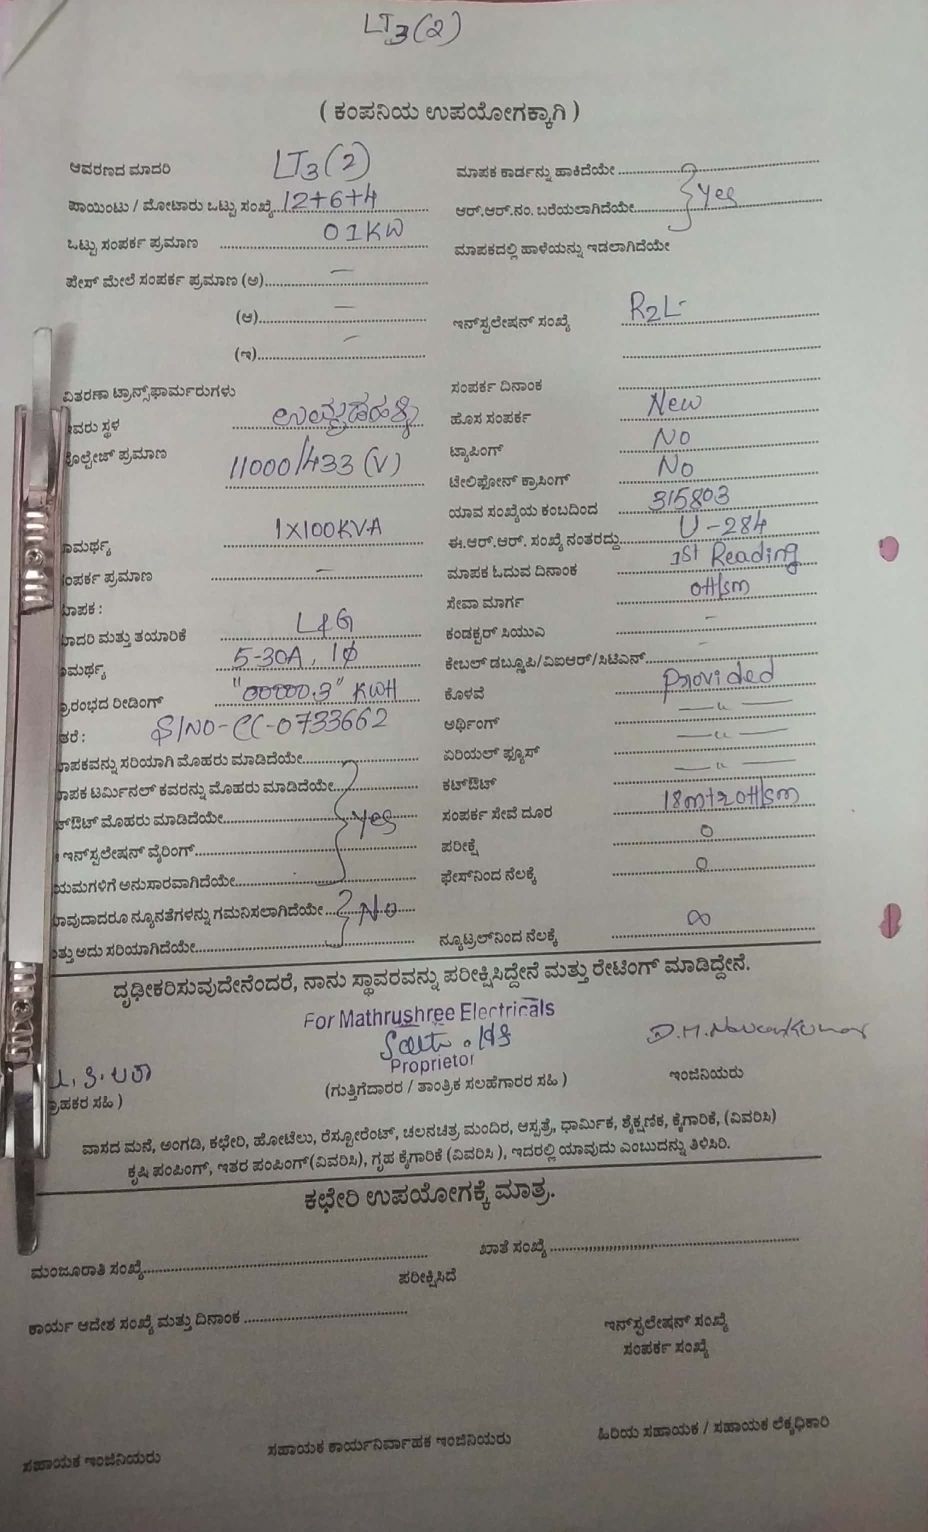 LT3(2)
( ಕಂಪನಿಯ ಉಪಯೋಗಕ್ಕಾಗಿ )
ಆವರಣದ ಮಾದರಿ LT3(2)
ಮಾಪಕ ಕಾರ್ಡನ್ನು ಹಾಕಿದೆಯೇ
ಪಾಯಿಂಟು / ಮೋಟಾರು ಒಟ್ಟು ಸಂಖ್ಯೆ 12+6+4
ಆರ್.ಆರ್.ನಂ. ಬರೆಯಲಾಗಿದೆಯೇ Yes
ಒಟ್ಟು ಸಂಪರ್ಕ ಪ್ರಮಾಣ 01KW
ಮಾಪಕದಲ್ಲಿ ಹಾಳೆಯನ್ನು ಇಡಲಾಗಿದೆಯೇ
ಪೇಸ್ ಮೇಲೆ ಸಂಪರ್ಕ ಪ್ರಮಾಣ (ಅ) —
(ಆ) —
ಇನ್‌ಸ್ಟಲೇಷನ್ ಸಂಖ್ಯೆ R2L-
(ಇ) —
ವಿತರಣಾ ಟ್ರಾನ್ಸ್‌ಫಾರ್ಮರುಗಳು
ಸಂಪರ್ಕ ದಿನಾಂಕ
ವರು ಸ್ಥಳ
ಹೊಸ ಸಂಪರ್ಕ New
ಟ್ಯಾಪಿಂಗ್ No
ವೋಲ್ಟೇಜ್ ಪ್ರಮಾಣ 11000/433 (V)
ಟೇಲಿಫೋನ್ ಕ್ರಾಸಿಂಗ್ No
ಯಾವ ಸಂಖ್ಯೆಯ ಕಂಬದಿಂದ 315803
ಾಮರ್ಥ್ಯ 1X100KVA
ಈ.ಆರ್.ಆರ್. ಸಂಖ್ಯೆ ನಂತರದ್ದು U-284
ಂಪರ್ಕ ಪ್ರಮಾಣ —
ಮಾಪಕ ಓದುವ ದಿನಾಂಕ 1st Reading
ಾಪಕ :
ಸೇವಾ ಮಾರ್ಗ OH/sm
ಾದರಿ ಮತ್ತು ತಯಾರಿಕೆ L&G
ಕಂಡಕ್ಟರ್ ಸಿಯುಎ -
ಾಮರ್ಥ್ಯ 5-30A, 1ϕ
ಕೇಬಲ್ ಡಬ್ಲ್ಯೂಪಿ/ವಿಐಆರ್/ಸಿಟಿಎನ್ -
್ರಾರಂಭದ ರೀಡಿಂಗ್ "00000.3" KWH
ಕೊಳವೆ Provided
ತರೆ : S/NO-CC-0733662
ಅರ್ಥಿಂಗ್ —"—
ಾಪಕವನ್ನು ಸರಿಯಾಗಿ ಮೊಹರು ಮಾಡಿದೆಯೇ
ಏರಿಯಲ್ ಫ್ಯೂಸ್ —"—
ಾಪಕ ಟರ್ಮಿನಲ್ ಕವರನ್ನು ಮೊಹರು ಮಾಡಿದೆಯೇ
ಕಟ್‌ಔಟ್ —"—
ಟ್‌ಔಟ್ ಮೊಹರು ಮಾಡಿದೆಯೇ Yes
ಸಂಪರ್ಕ ಸೇವೆ ದೂರ 18m+20H/sm
ಇನ್‌ಸ್ಟಲೇಷನ್ ವೈರಿಂಗ್
ಪರೀಕ್ಷೆ 0
ಯಮಗಳಿಗೆ ಅನುಸಾರವಾಗಿದೆಯೇ
ಫೇಸ್‌ನಿಂದ ನೆಲಕ್ಕೆ 0
ಾವುದಾದರೂ ನ್ಯೂನತೆಗಳನ್ನು ಗಮನಿಸಲಾಗಿದೆಯೇ No
ತ್ತು ಅದು ಸರಿಯಾಗಿದೆಯೇ
ನ್ಯೂಟ್ರಲ್‌ನಿಂದ ನೆಲಕ್ಕೆ ∞
ದೃಢೀಕರಿಸುವುದೇನೆಂದರೆ, ನಾನು ಸ್ಥಾವರವನ್ನು ಪರೀಕ್ಷಿಸಿದ್ದೇನೆ ಮತ್ತು ರೇಟಿಂಗ್ ಮಾಡಿದ್ದೇನೆ.
For Mathrushree Electricals
D.M. Naveenkumar
Proprietor
್ರಾಹಕರ ಸಹಿ )
(ಗುತ್ತಿಗೆದಾರರ / ತಾಂತ್ರಿಕ ಸಲಹೆಗಾರರ ಸಹಿ )
ಇಂಜಿನಿಯರು
ವಾಸದ ಮನೆ, ಅಂಗಡಿ, ಕಛೇರಿ, ಹೋಟೆಲು, ರೆಸ್ಟೋರೆಂಟ್, ಚಲನಚಿತ್ರ ಮಂದಿರ, ಆಸ್ಪತ್ರೆ, ಧಾರ್ಮಿಕ, ಶೈಕ್ಷಣಿಕ, ಕೈಗಾರಿಕೆ, (ವಿವರಿಸಿ)
ಕೃಷಿ ಪಂಪಿಂಗ್, ಇತರ ಪಂಪಿಂಗ್(ವಿವರಿಸಿ), ಗೃಹ ಕೈಗಾರಿಕೆ (ವಿವರಿಸಿ ), ಇದರಲ್ಲಿ ಯಾವುದು ಎಂಬುದನ್ನು ತಿಳಿಸಿರಿ.
ಕಛೇರಿ ಉಪಯೋಗಕ್ಕೆ ಮಾತ್ರ.
ಮಂಜೂರಾತಿ ಸಂಖ್ಯೆ
ಖಾತೆ ಸಂಖ್ಯೆ
ಪರೀಕ್ಷಿಸಿದೆ
ಕಾರ್ಯ ಆದೇಶ ಸಂಖ್ಯೆ ಮತ್ತು ದಿನಾಂಕ
ಇನ್‌ಸ್ಟಲೇಷನ್ ಸಂಖ್ಯೆ
ಸಂಪರ್ಕ ಸಂಖ್ಯೆ
ಸಹಾಯಕ ಇಂಜಿನಿಯರು
ಸಹಾಯಕ ಕಾರ್ಯನಿರ್ವಾಹಕ ಇಂಜಿನಿಯರು
ಹಿರಿಯ ಸಹಾಯಕ / ಸಹಾಯಕ ಲೆಕ್ಕಧಿಕಾರಿ